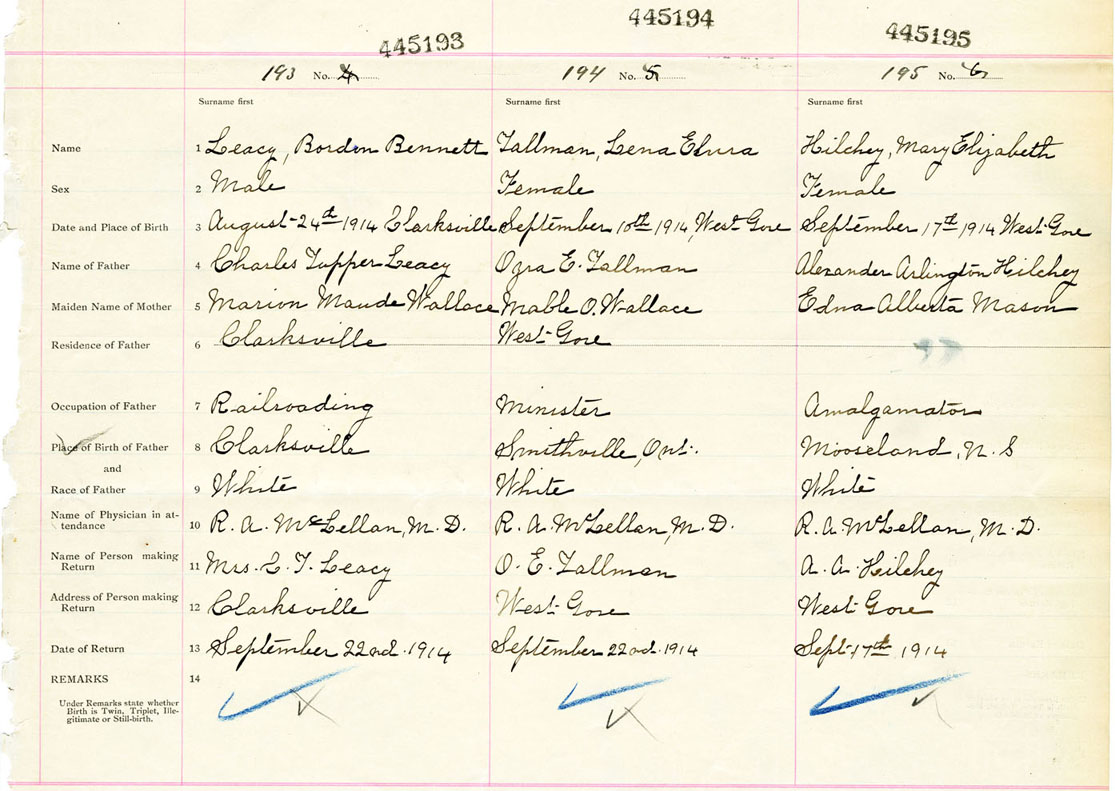 445193 445194 445195
193 No. 4 194 No. 5 195 No. 6
Surname first Surname first Surname first
Name 1 Leacy, Borden Bennett Tallman, Lena Elvira Hilchey, Mary Elizabeth
Sex 2 Male Female Female
Date and Place of Birth 3 August 24th 1914 Clarksville September 10th 1914, West Gore September 17th 1914 West Gore
Name of Father 4 Charles Tupper Leacy Ozra E. Tallman Alexander Arlington Hilchey
Maiden Name of Mother 5 Marion Maude Wallace Mable O. Wallace Edna Alberta Mason
Residence of Father 6 Clarksville West Gore "
Occupation of Father 7 Railroading Minister Amalgamator
Place of Birth of Father 8 Clarksville Smithville, Ont. Mooseland, N. S
and
Race of Father 9 White White White
Name of Physician in at-
tendance 10 R. A. McLellan, M. D. R. A. McLellan, M. D. R. A. McLellan, M. D.
Name of Person making
Return 11 Mrs. C. T. Leacy O. E. Tallman A. A. Hilchey
Address of Person making
Return 12 Clarksville West Gore West Gore
Date of Return 13 September 22nd. 1914 September 22nd. 1914 Sept. 17th 1914
REMARKS 14
Under Remarks state whether
Birth is Twin, Triplet, Ille-
gitimate or Still-birth.